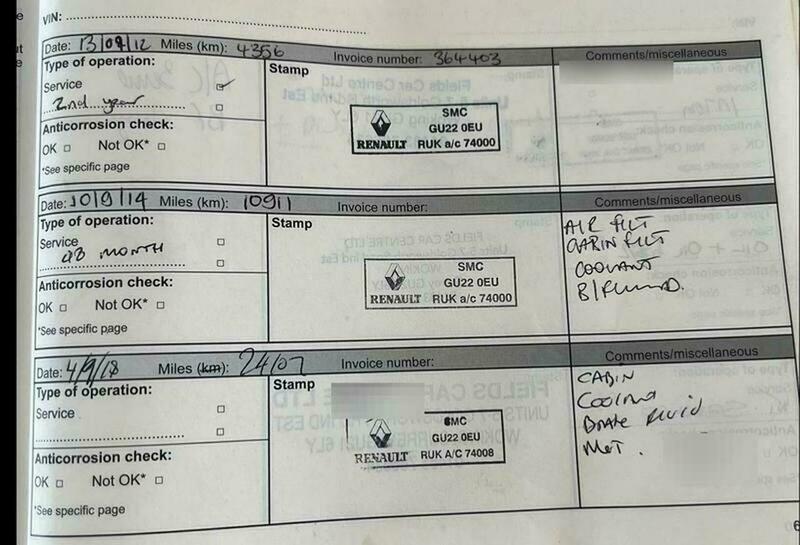 VIN:
Date: 13/09/12 Miles (km): 4356 Invoice number: 364403 Comments/miscellaneous
Type of operation: Stamp
Service
2nd year
Anticorrosion check:
OK Not OK*
*See specific page
SMC
GU22 0EU
RENAULT RUK a/c 74000
Date: 10/9/14 Miles (km): 10911 Invoice number: Comments/miscellaneous
Type of operation: Stamp
Service
48 MONTH
Anticorrosion check:
OK Not OK*
*See specific page
SMC
GU22 0EU
RENAULT RUK a/c 74000
AIR FILT
CABIN FILT
COOLANT
B/Fluid
Date: 4/9/18 Miles (km): Invoice number: Comments/miscellaneous
Type of operation: Stamp
Service
Anticorrosion check:
OK Not OK*
*See specific page
SMC
GU22 0EU
RENAULT RUK A/C 74008
CABIN
Coolant
Brake fluid
MOT.
6